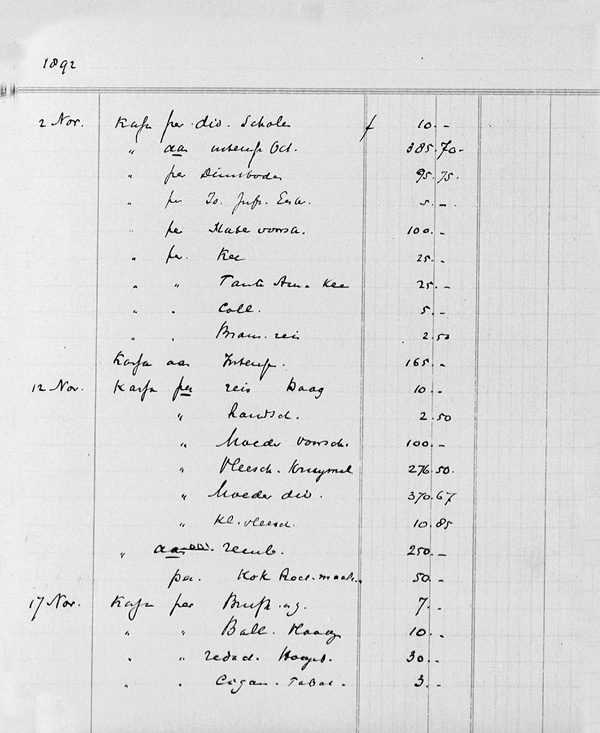 1892
2 Nov. Kassa per div. Schola f 10.-
" aan intensp Oct. 385.70-
" per Dienstboden 95.75.
" pr Jo. Jufr. Esa. 5.-
" per voorsch. 100.-
" pr. Kee 25.-
" " Tante Kee 25.-
" " Coll. 5.-
" " Bram. reis 2.50
Kassa aan 165.-
12 Nov. Kassa per reis Haag 10.-
" handsch. 2.50
" Moeder Voorsch. 100.-
" Vleesch. 276.50.
" Moeder div. 370.67
" Kl. vleesch. 10.85
" aan 250.-
per. Kok 50.-
17 Nov. Kassa per 7.-
" " Ball. Haag 10.-
" " redact. 30.-
" " Cigar. Tabac. 3.-